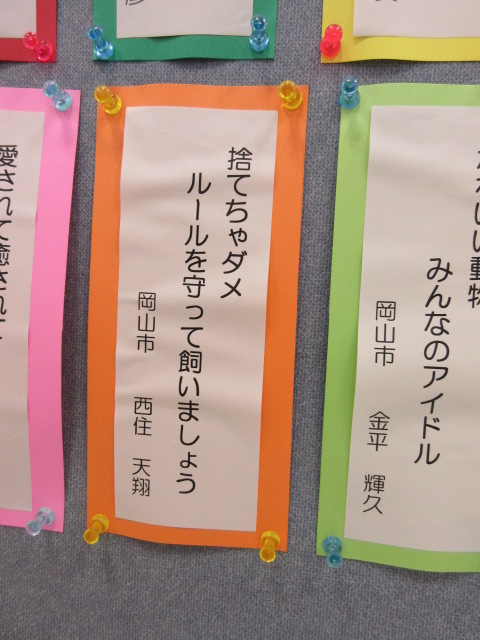 かわいい動物
みんなのアイドル
岡山市 金平 輝久
捨てちゃダメ
ルールを守って飼いましょう
岡山市 西住 天翔
愛されて癒されて